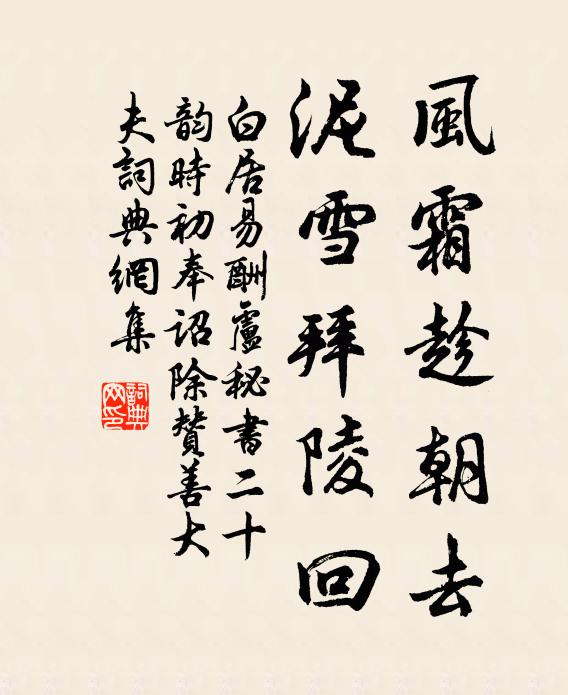 風霜趁朝去
泥雪拜陵回
白居易酬盧秘書二十
韵時初奉詔除贊善大
夫詞典網集
詞典
网印